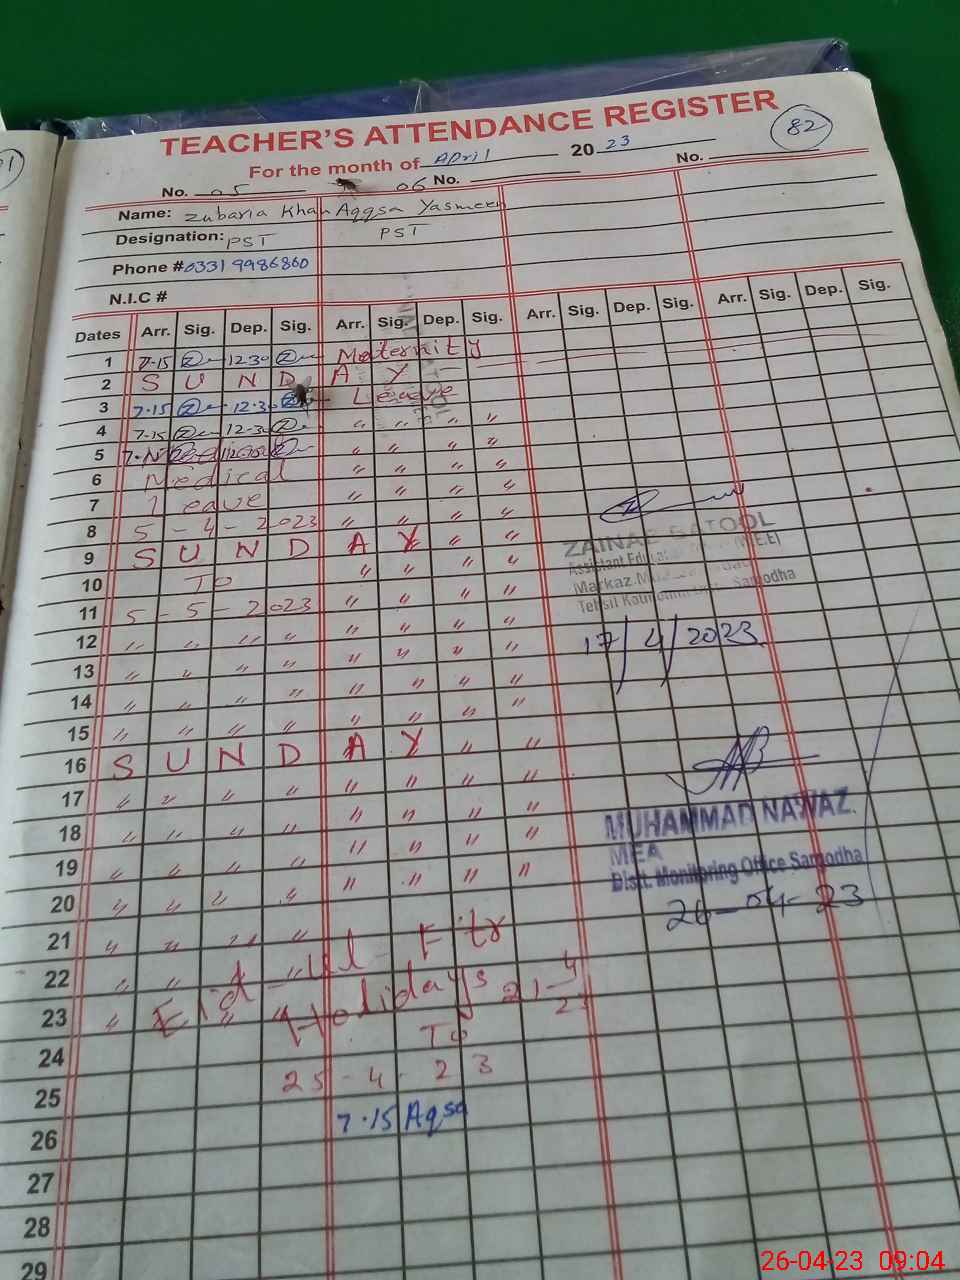 TEACHER'S ATTENDANCE REGISTER
82
For the month of April 20 23
No. 05 06 No. No.
Name: Zubaria Khan Aqqsa Yasmeen
Designation: PST PST
Phone # 0331 9986860
N.I.C #
Dates Arr. Sig. Dep. Sig. Arr. Sig. Dep. Sig. Arr. Sig. Dep. Sig. Arr. Sig. Dep. Sig.
1 7-15 12.30 Maternity
2 S U N D A Y
3 7.15 12.30 Leave
4 7-15 12-30 " " " "
5 " " " "
6 Medical " " " "
7 Leave " " " "
8 5 - 4 - 2023 " " " "
9 S U N D A Y " "
10 To " " " "
11 5 - 5 - 2023 " " " "
12 " " " " " " " "
13 " " " " " " " "
14 " " " " " " " "
15 " " " " " " " "
16 S U N D A Y " "
17 " " " " " " " "
18 " " " " " " " "
19 " " " " " " " "
20 " " " " " " " "
21 " " " "
22 " " "
23 " " "
Eid-ul-Fitr
Holidays 21-4-23
24 To
25 25-4-23
26 7.15 Aqsa
27
28
29
ZAINAB BATOOL
Assistant
Markaz
Tehsil Samodha
17/4/2023
MUHAMMAD NAWAZ.
MEA
Distt. Monitoring Office Sargodha
26-04-23
26-04-23 09:04